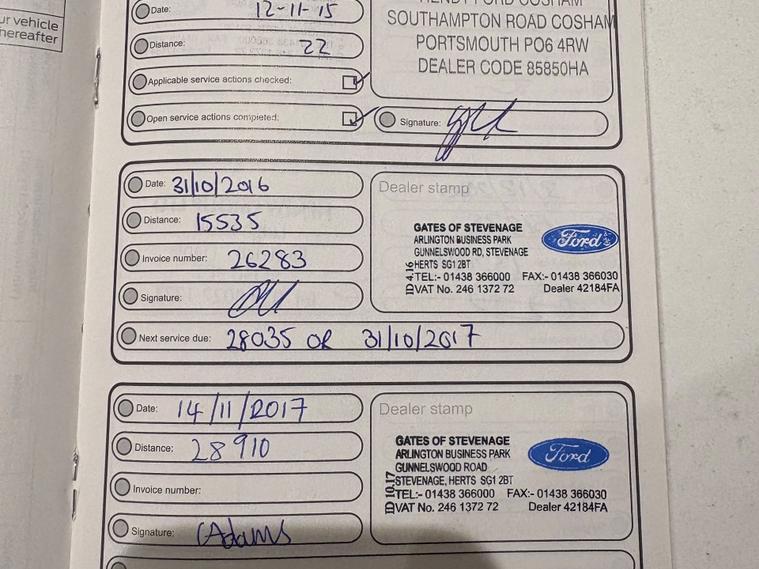 ur vehicle
hereafter
Date: 12-11-15
Distance: 22
Applicable service actions checked:
Open service actions completed:
HENDY FORD COSHAM
SOUTHAMPTON ROAD COSHAM
PORTSMOUTH PO6 4RW
DEALER CODE 85850HA
Signature:
Date: 31/10/2016
Distance: 15535
Invoice number: 26283
Signature:
Next service due: 28035 OR 31/10/2017
Dealer stamp
GATES OF STEVENAGE
ARLINGTON BUSINESS PARK
GUNNELSWOOD RD, STEVENAGE
HERTS SG1 2BT
TEL:- 01438 366000 FAX:- 01438 366030
VAT No. 246 1372 72 Dealer 42184FA
ID 4.16
Ford
Date: 14/11/2017
Distance: 28910
Invoice number:
Signature: CAdams
Dealer stamp
GATES OF STEVENAGE
ARLINGTON BUSINESS PARK
GUNNELSWOOD ROAD
STEVENAGE, HERTS SG1 2BT
TEL:- 01438 366000 FAX:- 01438 366030
VAT No. 246 1372 72 Dealer 42184FA
ID 10.17
Ford